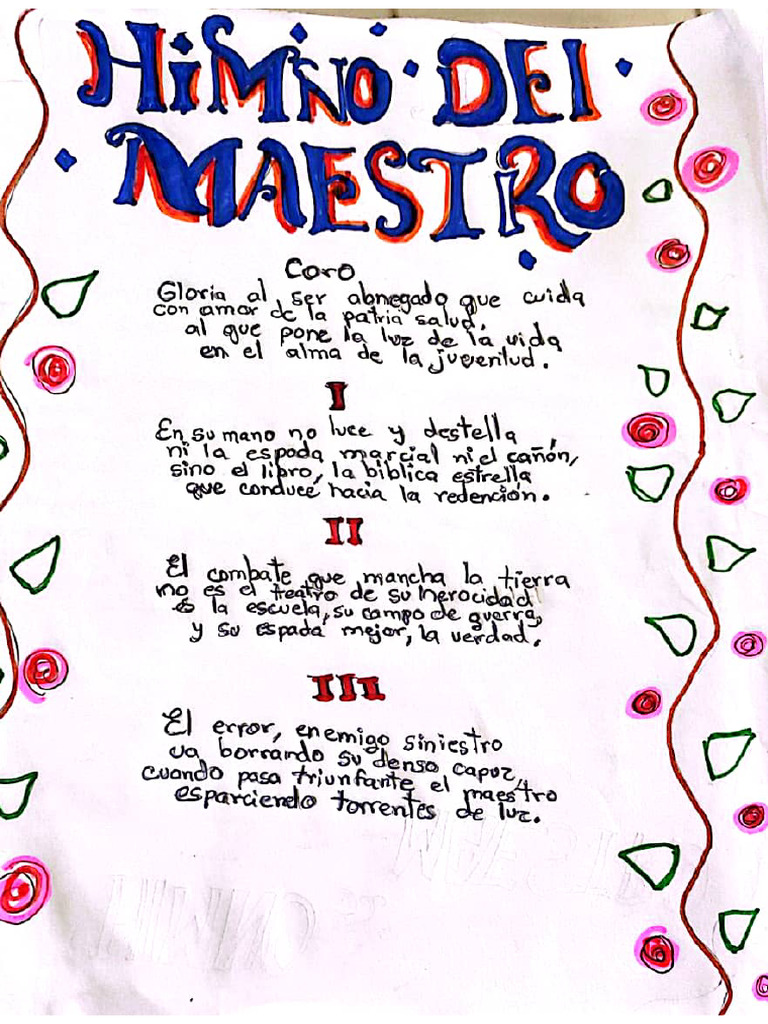 HiMNO DEl
MAESTRO
Coro
Gloria al ser abnegado que cuida
con amor de la patria salud,
al que pone la luz de la vida
en el alma de la juventud.
I
En su mano no luce y destella
ni la espada marcial ni el cañón,
sino el libro, la biblica estrella
que conduce hacia la redención.
II
El combate que mancha la tierra
no es el teatro de su herocidad
es la escuela, su campo de guerra,
y su espada mejor, la verdad.
III
El error, enemigo siniestro
va borrando su denso capuz,
cuando pasa triunfante el maestro
esparciendo torrentes de luz.
HIMNO